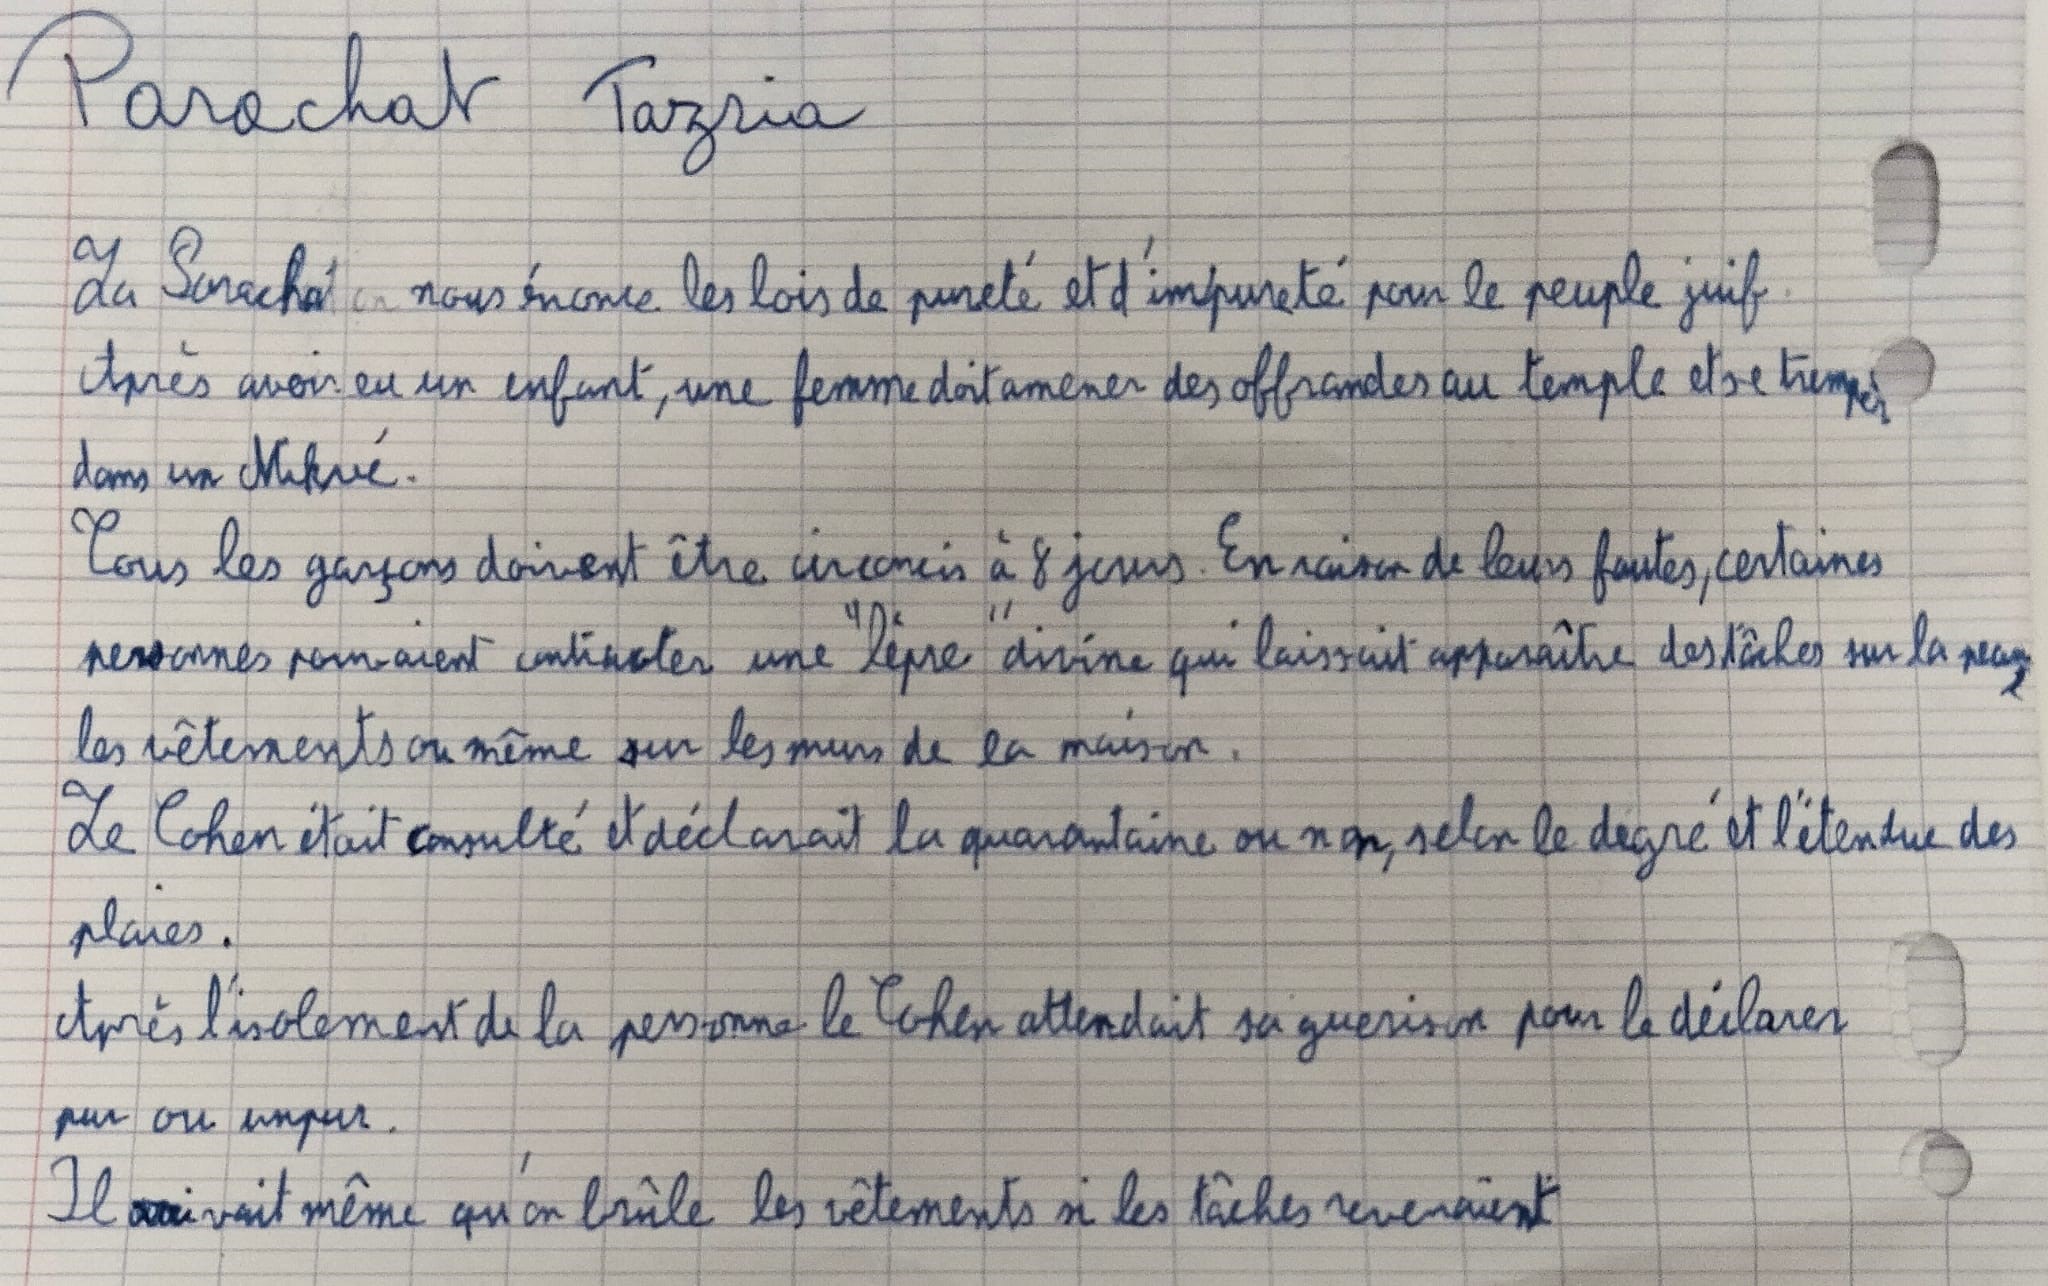 Parachat Tazria
La Paracha nous énonce les lois de pureté et d'impureté pour le peuple juif.
Après avoir eu un enfant, une femme doit amener des offrandes au temple et se tremper
dans un Mikvé.
Tous les garçons doivent être circoncis à 8 jours. En raison de leurs fautes, certaines
personnes pouvaient contracter une "lèpre" divine qui laissait apparaître des tâches sur la peau,
les vêtements ou même sur les murs de la maison.
Le Cohen était consulté et déclarait la quarantaine ou non, selon le degré et l'étendue des
plaies.
Après l'isolement de la personne le Cohen attendait sa guerison pour le déclarer
pur ou impur.
Il arrivait même qu'on brûle les vêtements si les tâches revenaient